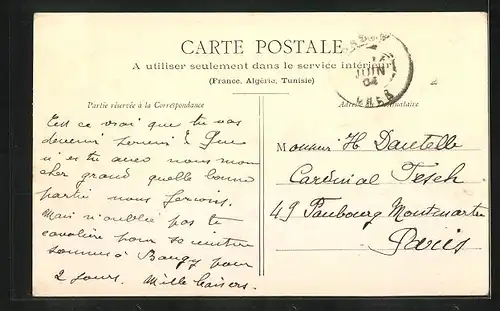 CARTE POSTALE
A utiliser seulement dans le service intérieur
(France, Algérie, Tunisie)
JUIN
04
CHER
Partie réservée à la Correspondance
Adresse du Destinataire
Est ce vrai que tu vas
devenir
n'es tu avec nous mon
cher grand quelle bonne
partie nous ferions.
Mais n'oublie pas ta
cavalière pour
sommes à Baugy pour
2 jours. Mille baisers.
Monsieur H Dautelle
Cardinal Fesch
49 Faubourg Montmartre
Paris